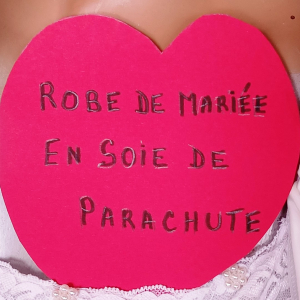 ROBE DE MARIÉE
EN SOIE DE
PARACHUTE